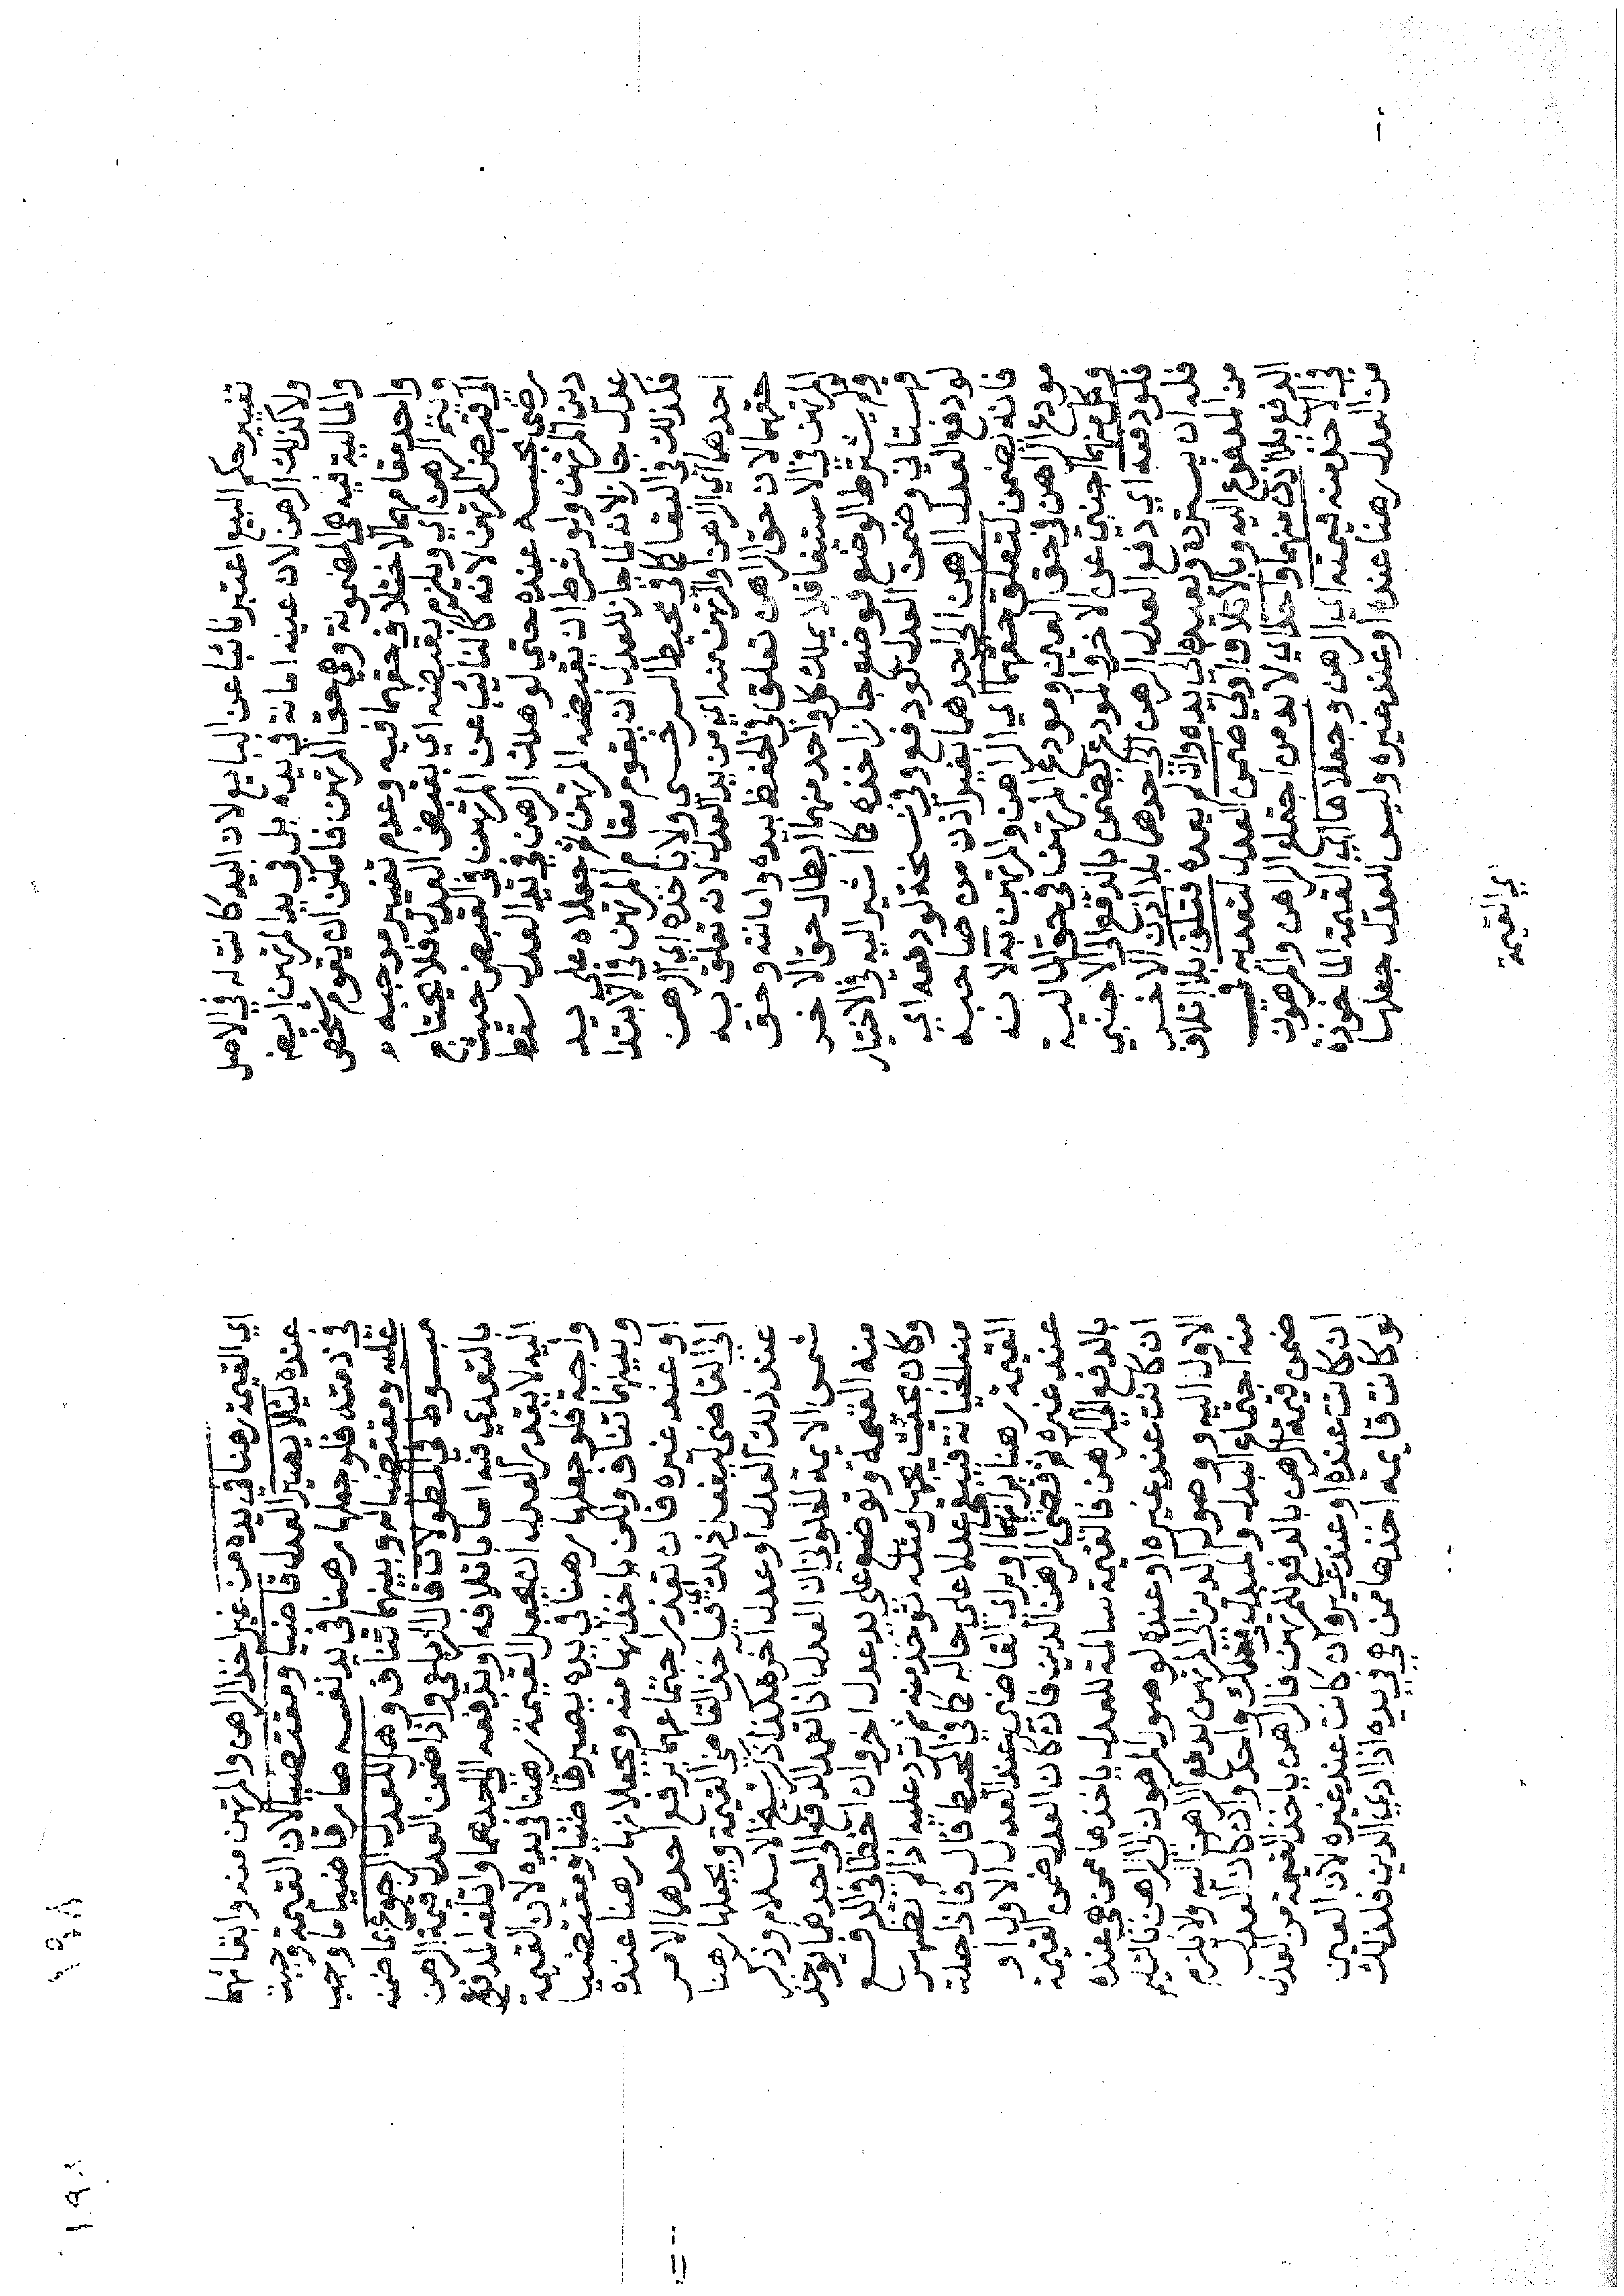 تغيير حكم البيع اعتبر نائبا عن البايع لان اليد كانت له في الاصل
ولا كذلك الرهن لان عينه امانة في يده بل في يد المرتهن ايضا
والمالية فيه هي المضمونة وهي حق المرتهن فامكن ان يقوم شخص
واحد مقامهما لاختلاف حقهما فيه وعدم تغيير موجبه
ويتم الرهن اي ويلزم بقبضه اي بقبض العدل فلا يحتاج
الى قبض المرتهن لانه كالنائب عن المرتهن في القبض حيث
رضي بحبسه عنده حتى لو هلك الرهن في يد العدل سقط
دين المرتهن ولو شرط ان يقبضه المرتهن ثم جعلاه على يد
عدل جاز لانه لما جاز للعدل ان يقوم مقام المرتهن في الابتدا
فكذلك في البقا كما في محيط السرخسي ولا ياخذه اي الرهن
احدهما اي الراهن والمرتهن منه اي من يد العدل لانه تعلق به
حقهما لان حق الراهن تعلق في الحفظ بيده وامانته وحق
المرتهن في الاستيفا فلا يملك كل واحد منهما ابطال حق الاخر
ولم يشترط الوضع فوضع جاز اخذه كما اشير اليه في الاختيار
قهستاني وضمن العدل لو دفع وفي نسخة لو دفعه اي
لو دفع العدل الرهن الى احدهما بغير اذن من صاحبه
فانه يضمن لتعلق حقهما اي الراهن والمرتهن به لانه
مودع الراهن في حق العين ومودع المرتهن في حق المالية
وكل منهما اجنبي عن الاخر والمودع يضمن بالدفع الى الاجنبي
فلو دفعه اي دفع العدل الرهن الى احدهما بلا اذن الاخر
فله ان يسترده ويعيده الى يده وان لم يعده فتلف بلا اتلاف
من المدفوع اليه وبالاتلاف اولي ضمن العدل لتعديه في
الدفع بلا اذن منهما واخذا اي لا بد من اجتماع الراهن والمرتهن
في الاخذ منه قيمته اي الرهن وجعلاها اي القيمة الماخوذة
من العدل رهنا عنده او عند غيره وليس للعدل جعلها
اي القيمة
١٩٨
اي القيمة رهنا في يده من غير اخذ الراهن والمرتهن منه وابقائهما
عنده ليلا يصير العدل قاضيا ومقتضيا لان القيمة وجبت
في ذمته فلو جعلها رهنا في يد نفسه صار قاضيا ما وجب
عليه ومقتضيا له وبينهما تناف وهل للعدل الرجوع بما ضمنه
مبسوط في المطولات قال الزيلعي واذا ضمن العدل قيمة الرهن
بالتعدي فيه اما باتلافه او بدفعه الى احدهما واتلفه المدفوع
اليه لا يقدر العدل ان يجعل القيمة رهنا في يده لان القيمة
واجبة فلو جعلها رهنا في يده يصير قاضيا ومقتضيا
وبينهما تناف ولكن ياخذانها منه ويجعلانها رهنا عنده
او عند غيره فان تعذر اجتماعهما يرفع احدهما الامر
الى القاضي ليفعل ذلك فياخذ القاضي القيمة ويجعلها رهنا
عند ذلك العدل او عدل اخر هكذا ذكر شيخ الاسلام وذكر
شمس الايمة الحلواني ان العدل اذا تعمد الدفع الى احدهما يوخذ
منه القيمة وتوضع على يد عدل اخر وان اخطا في الدفع
وكان بحيث يجهل مثله توخذ منه ثم ترد عليه اذا لم تظهر
منه الخيانة فيبقى عدلا على حاله كما في المحيط قال فاذا جعلت
القيمة رهنا برايهما او براي القاضي عند العدل الاول او
عند غيره ثم قضى الراهن الدين فان كان العدل ضمن القيمة
بالدفع الى الراهن فالقيمة سالمة للعدل ياخذها ممن هي عنده
ان كانت عند غيره او عنده لوصول المرهون الى الراهن بالتسليم
الاول اليه ووصول الدين الى المرتهن بدفع الراهن اليه ولا يلزم
منه اجتماع البدل والمبدل في ملك واحد وان كان العدل
ضمن قيمة الرهن بالدفع للمرتهن فالراهن ياخذ القيمة من العدل
ان كانت عنده او عند غيره ان كانت عند غيره لان العين
لو كانت قايمة اخذها ممن هي في يده اذا ادي الدين فكذلك